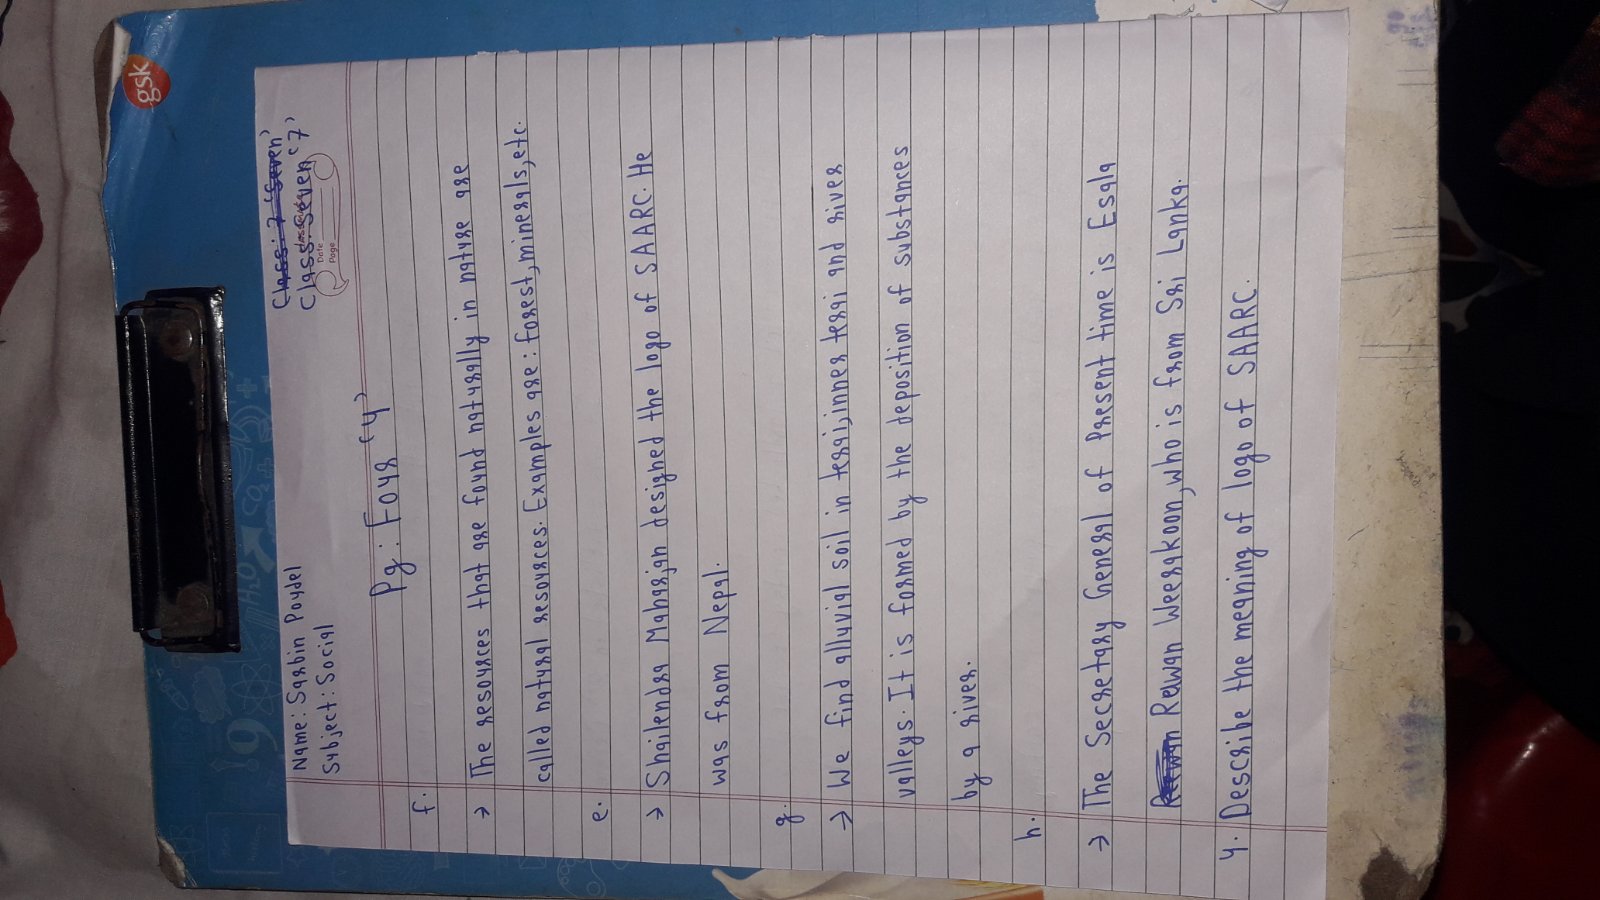 gsk
Name: Sarbin Poudel
Subject: Social
Class: 7 'Seven'
Class: Seven '7'
Date
Page
Pg: Four '4'
f.
→ The resources that are found naturally in nature are
called natural resources. Examples are: forest, minerals, etc.
e.
→ Shailendra Maharjan designed the logo of SAARC. He
was from Nepal.
g.
→ We find alluvial soil in terai, inner terai and river
valleys. It is formed by the deposition of substances
by a river.
h.
→ The Secretary General of Present time is Esala
Ruwan Weerakoon, who is from Sri Lanka.
4. Describe the meaning of logo of SAARC.
H₂O
CO₂
19